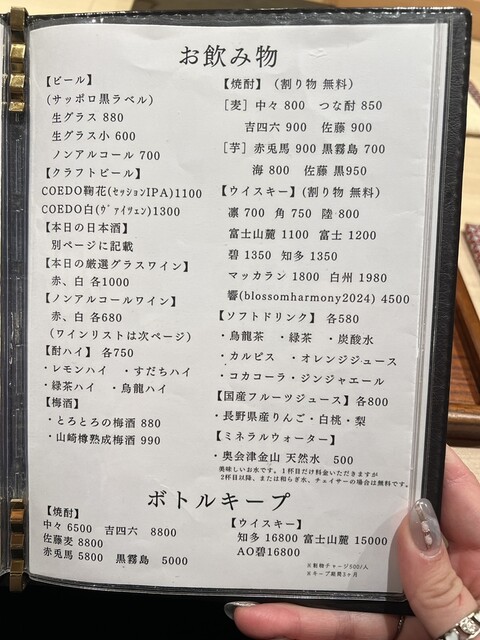 お飲み物
【ビール】
(サッポロ黒ラベル)
生グラス 880
生グラス小 600
ノンアルコール 700
【クラフトビール】
COEDO鞠花(ｾｯｼｮﾝIPA)1100
COEDO白(ｳﾞｧｲﾂｪﾝ)1300
【本日の日本酒】
別ページに記載
【本日の厳選グラスワイン】
赤、白 各1000
【ノンアルコールワイン】
赤、白 各680
(ワインリストは次ページ)
【酎ハイ】 各750
・レモンハイ ・すだちハイ
・緑茶ハイ ・烏龍ハイ
【梅酒】
・とろとろの梅酒 880
・山崎樽熟成梅酒 990
【焼酎】 (割り物 無料)
[麦] 中々 800 つな酎 850
吉四六 900 佐藤 900
[芋] 赤兎馬 900 黒霧島 700
海 800 佐藤 黒950
【ウイスキー】(割り物 無料)
凛 700 角 750 陸 800
富士山麓 1100 富士 1200
碧 1350 知多 1350
マッカラン 1800 白州 1980
響(blossomharmony2024) 4500
【ソフトドリンク】 各580
・烏龍茶 ・緑茶 ・炭酸水
・カルピス ・オレンジジュース
・コカコーラ・ジンジャエール
【国産フルーツジュース】各800
・長野県産りんご・白桃・梨
【ミネラルウォーター】
・奥会津金山 天然水 500
美味しいお水です。1杯目だけ料金いただきますが
2杯目以降、または和らぎ水、チェイサーの場合は無料です。
ボトルキープ
【焼酎】
中々 6500 吉四六 8800
佐藤麦 8800
赤兎馬 5800 黒霧島 5000
【ウイスキー】
知多 16800 富士山麓 15000
AO碧16800
※割物チャージ500/人
※キープ期間3ヶ月